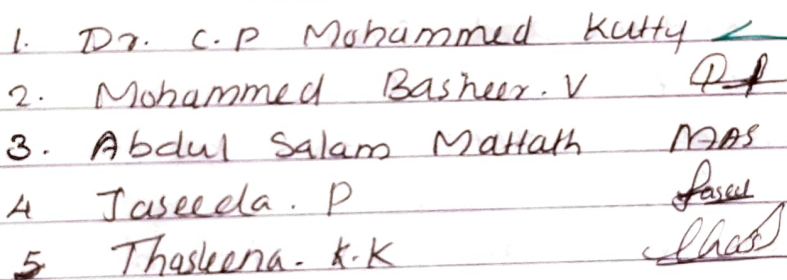 1. Dr. C.P Mohammed Kutty
2. Mohammed Basheer. V
3. Abdul Salam Mattath MAS
4 Jaseeda. P Jaseed
5 Thasleena. K.K